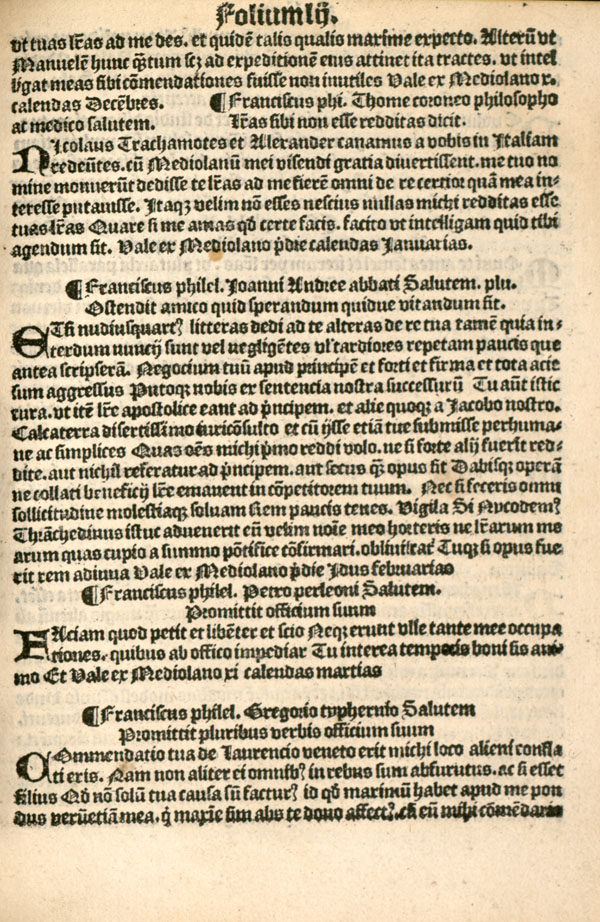 Foliumlij.
vt tuas lr̃as ad me des. et quidẽ talis qualis maxime expecto. Alterũ vt
Manuelẽ hunc qͣtum scʒ ad expeditionẽ eius attinet ita tractes. vt intel
ligat meas sibi cõmendationes fuisse non inutiles Vale ex Mediolano x.
calendas Decẽbres. ¶ Franciscus phi. Thome coroneo philosopho
ac medico salutem. lr̃as sibi non esse redditas dicit.
NIcolaus Trachamotes et Alexander canamus a vobis in Italiam
redeũtes. cũ Mediolanũ mei visendi gratia diuertissent. me tuo no
mine monuerũt dedisse te lr̃as ad me fierẽ omni de re certior quã mea in⸗
teresse putauisse. Itaqʒ velim non esses nescius nullas michi redditas esse
tuas lr̃as Quare si me amas qđ certe facis. facito vt intelligam quid tibi
agendum sit. Vale ex Mediolano p̃die calendas Januarias.
¶ Franciscus philel. Joanni Andree abbati Salutem. plu.
Ostendit amico quid sperandum quidue vitandum sit.
ETsi nudiusquartꝰ litteras dedi ad te alteras de re tua tamẽ quia in⸗
terdum nuncij sunt vel negligẽtes vl' tardiores repetam paucis que
antea scripserã. Negocium tuũ apud principẽ et forti et firma et tota acie
sum aggressus Putoqʒ nobis ex sentencia nostra successurũ Tu aũt istic
cura. vt itẽ lr̃e apostolice eant ad p̃ncipem. et alie quoqʒ a Jacobo nostro.
Calcaterra disertissimo iuricõsulto et cũ ip̃se etiã tue submisse perhuma⸗
ne ac simplices Quas oẽs michi p̃mo reddi volo. ne si forte alij fuerĩt red⸗
dite. aut nichil referatur ad p̃ncipem. aut secus qͣʒ opus sit Dabisqʒ operã
ne collati beneficij lr̃e emanent in cõpetitorem tuum. Nec si feceris omni
sollicitudine molestiaqʒ soluam Rem paucis tenes. Vigila Si Nycodemꝰ
Thrãchedinus istuc aduenerit eũ velim noĩe meo horteris ne lr̃arum me
arum quas cupio a summo põtifice cõfirmari. obliuiscat̃ Tuqʒ si opus fue
rit rem adiuua Vale ex Mediolano p̃die Jdus februarias
¶ Franciscus philel. Petro perleoni Salutem.
Promittit officium suum
FAciam quod petit et libẽter et scio Neqʒ erunt vlle tante mee occupa
tiones. quibus ab officio impediar Tu interea temporis boni sis ani⸗
mo Et Vale ex Mediolano xi calendas martias
¶ Franciscus philel. Gregorio typhernio Salutem
Promittit pluribus verbis officium suum
COmmendatio tua de Laurencio veneto erit michi loco alieni confla
ti eris. Nam non aliter ei omnibꝰ in rebus sum abfuturus. ac si esset
filius Qđ nõ solũ tua causa sũ facturꝰ id qđ maximũ habet apud me pon
dus verũetiã mea. q̃ maxĩe sim abs te dono affectꝰ. eũ mihi cõmẽdaris